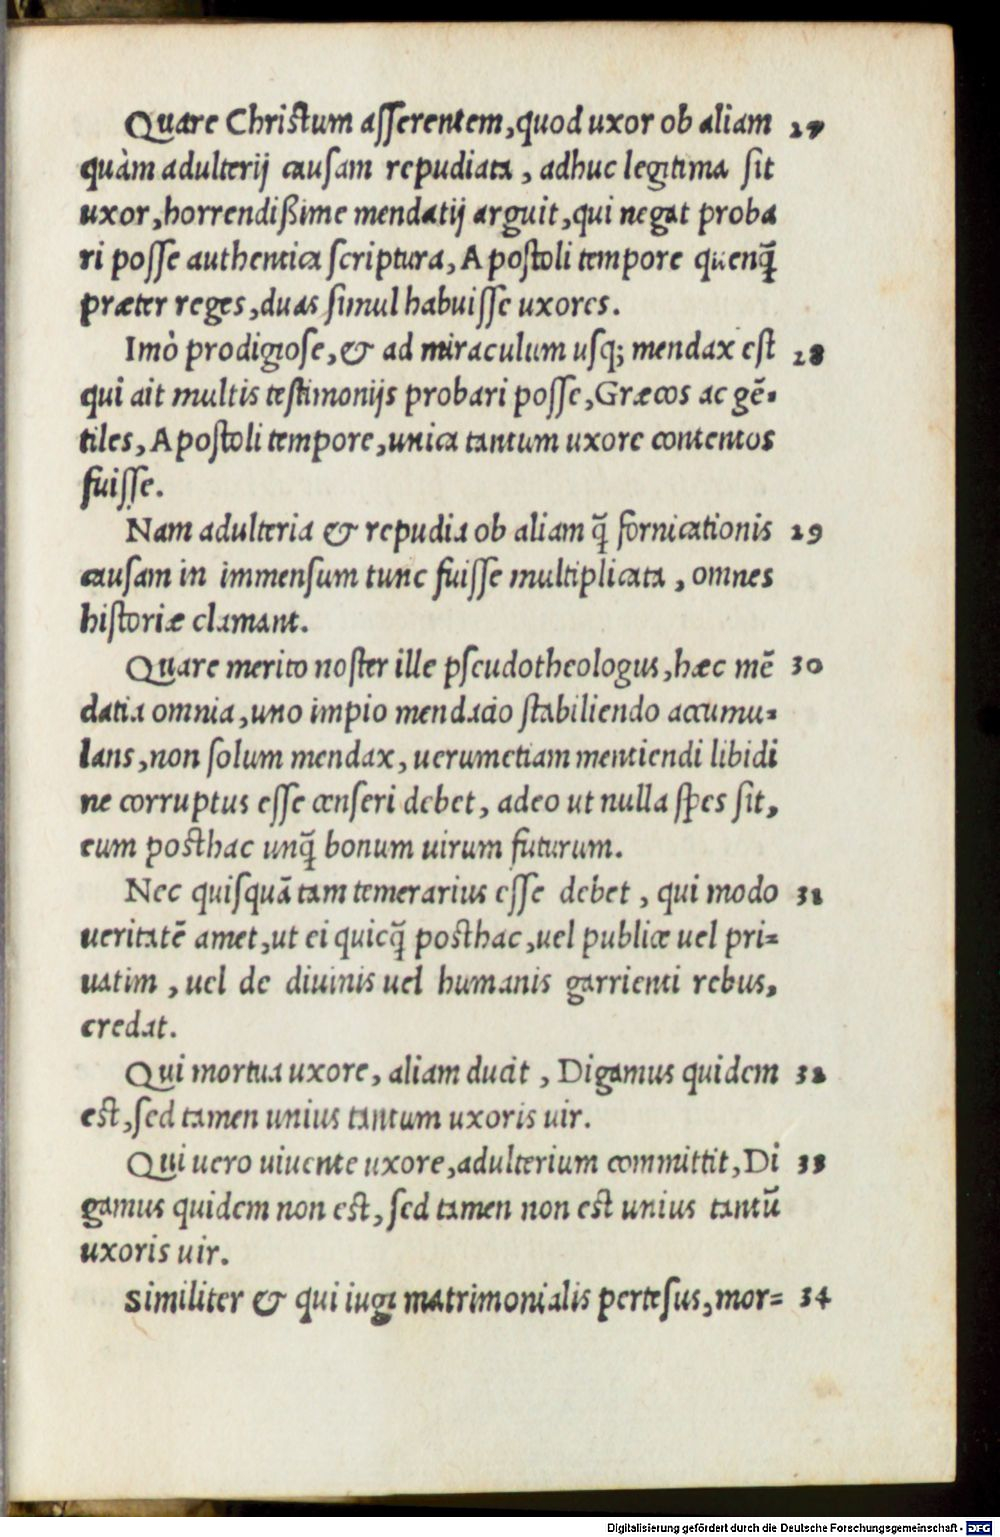 Quare Christum aſſerentem, quod uxor ob aliam 27
quàm adulterij cauſam repudiata, adhuc legitima ſit
uxor, horrendißime mendatij arguit, qui negat proba
ri poſſe authentica ſcriptura, Apoſtoli tempore quenq̃
præter reges, duas ſimul habuiſſe uxores.
Imò prodigioſe, & ad miraculum uſq; mendax eſt 28
qui ait multis teſtimonijs probari poſſe, Græcos ac gẽ-
tiles, Apoſtoli tempore, unica tantum uxore contentos
fuiſſe.
Nam adulteria & repudia ob aliam q̃ fornicationis 29
cauſam in immenſum tunc fuiſſe multiplicata, omnes
hiſtoriæ clamant.
Quare merito noſter ille pſeudotheologus, hæc mẽ 30
datia omnia, uno impio mendacio ſtabiliendo accumu-
lans, non ſolum mendax, uerumetiam mentiendi libidi
ne corruptus eſſe cenſeri debet, adeo ut nulla ſpes ſit,
eum poſthac unq̃ bonum uirum futurum.
Nec quiſquã tam temerarius eſſe debet, qui modo 31
ueritatẽ amet, ut ei quicq̃ poſthac, uel publice uel pri-
uatim, uel de diuinis uel humanis garrienti rebus,
credat.
Qui mortua uxore, aliam ducit, Digamus quidem 32
eſt, ſed tamen unius tantum uxoris uir.
Qui uero uiuente uxore, adulterium committit, Di 33
gamus quidem non eſt, ſed tamen non eſt unius tantũ
uxoris uir.
Similiter & qui iugi matrimonialis perteſus, mor- 34
Digitalisierung gefördert durch die Deutsche Forschungsgemeinschaft - DFG